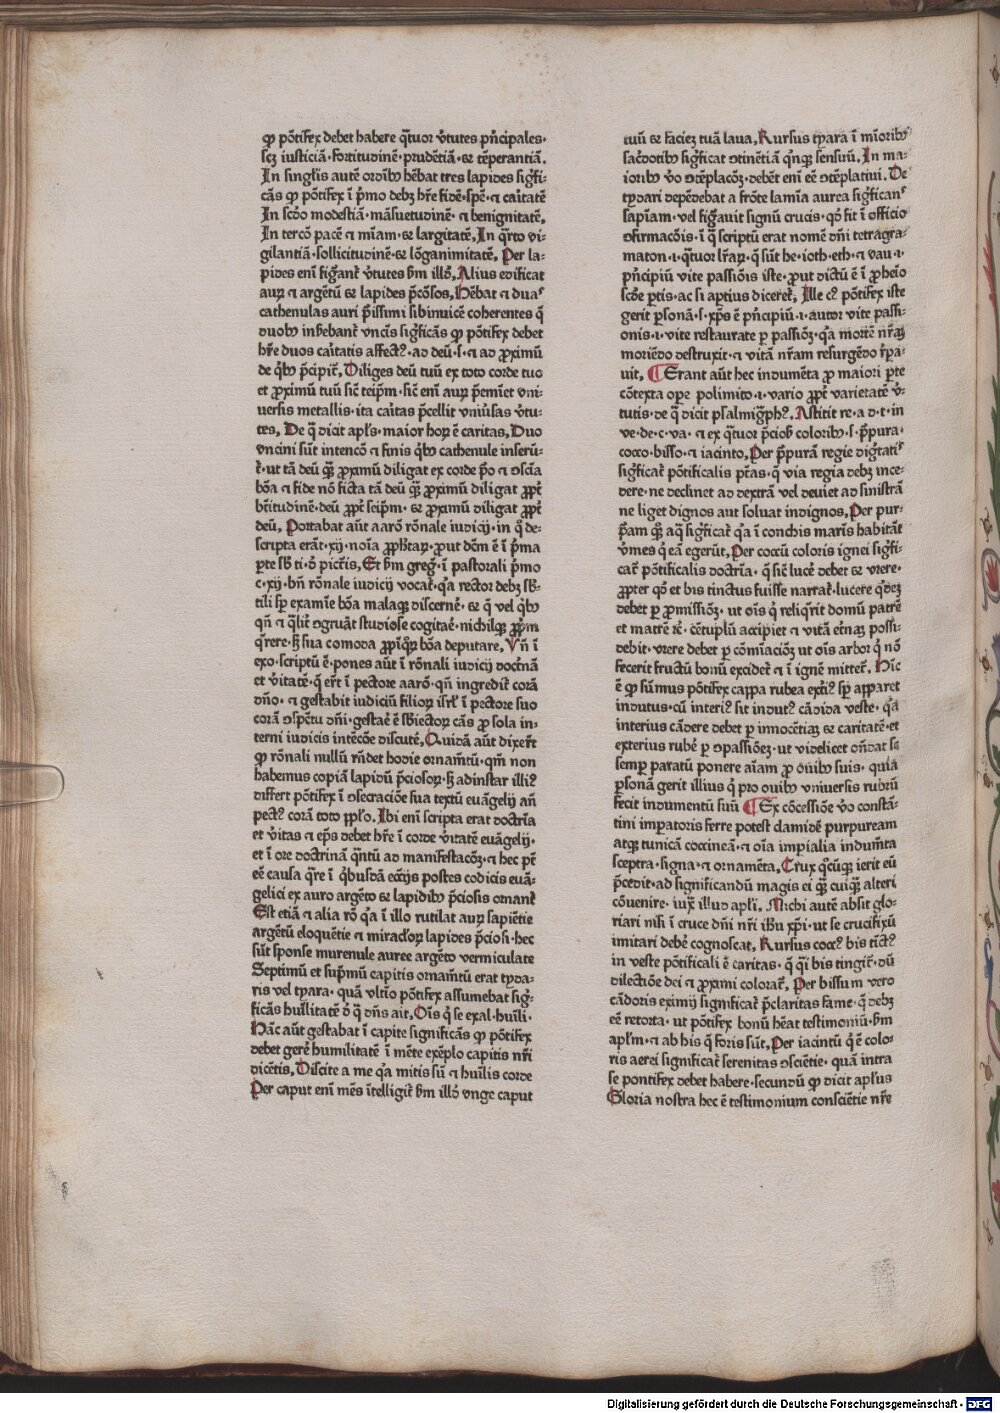 ꝙ põtifex debet habere q̃tuor v̾tutes pñcipales·
scꝫ iusticiã·fortitudinẽ·prudẽtiã·⁊ tẽperantiã.
In singl̾is autẽ ordĩbꝰ hẽbat tres lapides sig̾fi-
cãs ꝙ põtifex ĩ p̾mo debꝫ hr̃e fidẽ·spẽ·⁊ caritatẽ
In scd̾o modestiã·mãsuetudinẽ·⁊ benignitatẽ.
In tercõ pacẽ ⁊ mĩam·⁊ largitatẽ. In q̃rto vi-
gilantiã·sollicitudinẽ·⁊ lõganimitatẽ. Per la-
pides eni fig̾ant̾ v̾tutes ẜm illd̾. Alius edificat
auꝝ ⁊ argẽtũ ⁊ lapides p̃cõsos. Hẽbat ⁊ duaˢ
cathenulas auri p̃issimi sibinuicẽ coherentes q̃
duobꝰ inh̾ebant̾ vncis sig̾ficãs ꝙ põtifex debet
hr̃e duos caritatis affectꝰ·ad deũ·s·⁊ ad ꝓximũ
de q̾bꝰ p̃cipit̾. Diliges deũ tuũ ex toto corde tuo
et ꝓximũ tuũ sic̾ teip̃m·sic̾ eni auꝝ p̃emiẽt vni-
uersis metallis·ita caritas p̃cellit vniũsas v̾tu-
tes. De q̃ dicit apl̾s·maior hoꝝ ẽ caritas. Duo
vncini sũt intencõ ⁊ finis q̾bꝰ cathenule inserũ-
t̾·ut tã deũ qꝫ̃ ꝓximũ diligat ex corde p̃o ⁊ ꝯsc̃ia
bõa ⁊ fide nõ ficta tã deũ qꝫ̃ ꝓximũ diligat ꝓpt̾
b̃titudinẽ·deũ ꝓpt̾ seip̃m·⁊ ꝓximũ diligat ꝓpt̾
deũ. Portabat aũt aarõ rõnale iudicij·in q̃ de-
scripta erãt·xij·noĩa ꝓph̾taꝝ·ꝓut dc̃m ẽ ĩ p̾ma
ꝑte sb̾ ti·ꝺ̃ pict̾is. Et ẜm greg̾·ĩ pastorali p̾mo
c·xij·bñ rõnale iudicij vocat̾·q̾a rector debꝫ sb̾-
tili sꝑ examĩe bõa malaqꝫ discernẽ·⁊ q̃ vel q̾bꝰ
qñ ⁊ q̃lit̾ ꝯgruãt studiose cogitaẽ·nichilqꝫ ꝓp̾m
q̃rere·sꝫ sua comoda ꝓp̾iqꝝ bõa deputare. Vñ ĩ
exo·scriptũ ẽ·pones aũt ĩ rõnali iudicij doct̾nã
et v̾itatẽ·q̃ er̃t ĩ pectore aarõ·qñ ingredit̾ corã
dño·⁊ gestabit iudiciũ filioꝝ isrl̾ ĩ pectore suo
corã ꝯspc̃tu dñi·gestaẽ ẽ sb̾iectoꝝ cãs ꝓ sola in-
terni iudicis intẽcõe discutẽ. Quidã aũt dixer̃t
ꝙ rõnali nullũ rñdet hodie ornam̃tũ·qm̃ non
habemus copiã lapidũ p̃ciosoꝝ·sꝫ adinstar illiꝰ
differt põtifex ĩ ꝯsecraciõe sua textũ euãgelij añ
pectꝰ corã toto pp̾lo. Ibi eni scripta erat doct̾ia
et v̾itas ⁊ ep̃s debet hr̃e ĩ corde v̾itatẽ euãgelij·
et ĩ ore doctrinã q̃ntũ ad manifestacõꝫ·⁊ hec pt̃
eẽ causa q̃re ĩ q̾busdã ecc̃ijs postes codicis euã-
gelici ex auro argẽto ⁊ lapidibꝰ p̃ciosis ornant̾
Est etiã ⁊ alia rõ q̾a ĩ illo rutilat auꝝ sapiẽtie
argẽtũ eloquẽtie ⁊ miracl̾oꝝ lapides p̃ciosi·hec
sũt sponse murenule auree argẽto vermiculate
Septimũ et sup̃mũ capitis ornam̃tũ erat tyda-
ris vel tyara·quã vltĩo põtifex assumebat sig̾-
ficãs huĩlitatẽ ꝺ̃ q̃ dñs ait. Oĩs q̾ se exal·huĩli·
Hãc aũt gestabat ĩ capite significãs ꝙ põtifex
debet gerẽ humilitatẽ ĩ mẽte exẽplo capitis nr̃i
dicẽtis. Discite a me q̾a mitis sũ ⁊ huĩlis corde
Per caput eni mẽs ĩtelligit̾ ẜm illd̾ vnge caput
tuũ ⁊ faciez tuã laua. Rursus tyara ĩ mĩoribꝰ
sac̾dotibꝰ sig̾ficat ꝯtinẽtiã q̾nqꝫ sensuũ. In ma-
ioribꝰ v̾o ꝯtẽplacõꝫ·debẽt eni eẽ ꝯtẽplatiui. De
tydari depẽdebat a frõte lamĩa aurea sig̾ficanˢ
sapiãm·vel fig̾auit signũ crucis·qd̾ fit ĩ officio
ꝯfirmacõis·ĩ q̃ scriptũ erat nomẽ dñi tetragra-
maton·i·q̃tuor lr̃aꝝ·q̃ sũt he·ioth·eth·⁊ vau·i·
pñcipiũ vite passiõis iste·ꝓut dictũ ẽ ĩ ꝓhẽio
scd̾e ꝑtis·ac si aptius diceret̾. Ille cꝰ põtifex iste
gerit ꝑsonã·s·xp̃s ẽ pñcipiũ·i·autor vite passi-
onis·i·vite restaurate ꝑ passiõꝫ·q̾a mortẽ nr̃aꝫ
moriẽdo destruxit·⁊ vitã nr̃am resurgẽdo r̾pa-
uit. ¶ Erant aũt hec indumẽta ꝓ maiori ꝑte
cõtexta oꝑe polimito·i·vario ꝓpt̾ varietatẽ v̾-
tutis·de q̃ dicit psalmig̾phꝰ. Astitit re·a·d·t·in
ve·de·c·va·⁊ ex q̃tuor p̃ciosꝭ coloribꝰ·s·p̾pura·
cocco·bisso·⁊ iacinto. Per p̾purã regie dig̾tatiˢ
sig̾ficat̾ põtificalis ptãs·q̃ via regia debꝫ ince-
dere·ne declinet ad dextrã vel deuiet ad sinistrã
ne liget dignos aut soluat indignos. Per pur-
p̃am qꝫ̃ aq̃ sig̾ficat̾ q̾a ĩ conchis maris habitãt
v̾mes q̾ eã egerũt. Per coccũ coloris ignei sig̾fi-
cat̾ põtificalis doctria·q̃ sic̾ lucẽ debet ⁊ vrere·
ꝓpter qd̾ et bis tinctus fuisse narrat̾·lucere q̾deꝫ
debet ꝑ ꝓmissiõꝫ·ut oĩs q̾ reliq̾rit domũ patrẽ
et matrẽ ⁊c̾·cẽtuplũ accipiet ⁊ vitã et̾naꝫ possi-
debit·vrere debet ꝑ cõminaciõꝫ ut oĩs arbor q̃ nõ
fecerit fructũ bonũ excidet̾ ⁊ ĩ ignẽ mittet̾. Hĩc
ẽ q̾ sũmus põtifex cappa rubea extiꝰ sꝑ apparet
indutus·cũ interiꝰ sit indutꝰ cãdida veste·q̾a
interius cãdere debet ꝑ innocẽtiaꝫ ⁊ caritatẽ·et
exterius rubẽ ꝑ ꝯpassiõeꝫ·ut videlicet oñdat se
semꝑ paratũ ponere aĩam ꝓ ouibꝰ suis·quia
ꝑsonã gerit illius q̾ pro ouibꝰ vniuersis rubrũ
fecit indumentũ suũ ¶ Ex cõcessiõe v̾o constã-
tini imꝑatoris ferre potest clamidẽ purpuream
atqꝫ tunicã coccineã·⁊ oĩa imꝑialia indum̃ta
sceptra·signa·⁊ ornamẽta. Crux q̾cũqꝫ ierit eũ
p̃cedit·ad significandũ magis ei qꝫ̃ cuiqꝫ̃ alteri
cõuenire·iuxͣ illud apl̾i. Michi autẽ absit glo-
riari nisi ĩ cruce dñi nr̃i ihũ xp̃i·ut se crucifixũ
imitari debẽ cognoscat. Rursus coccꝰ bis tict̾ꝰ
in veste põtificali ẽ caritas·q̃ q̃si bis tingit̾·dũ
dilectiõe dei ⁊ ꝓximi colorat̾. Per bissum vero
cãdoris eximij significat̾ p̃claritas fame·q̃ debꝫ
eẽ retorta·ut põtifex bonũ hẽat testimoniũ·ẜm
apl̃m·⁊ ab hiis q̃ foris sũt. Per iacintũ q̾ ẽ colo-
ris aerei significat̾ serenitas ꝯsciẽtie·quã intra
se pontifex debet habere·secundũ ꝙ dicit apl̾us
Gloria nostra hec ẽ testimonium consciẽtie nr̃e
Digitalisierung gefördert durch die Deutsche Forschungsgemeinschaft - DFG